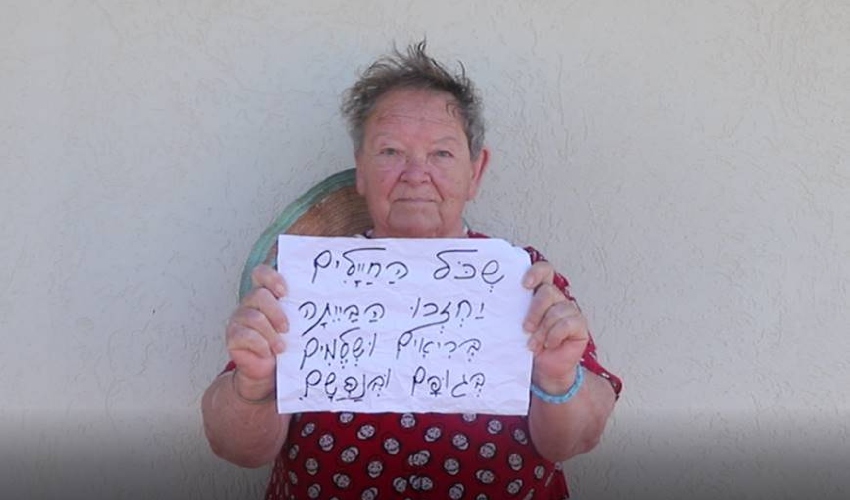 שֶכֹּל הַחַיָילִים
יַחְזְרוּ הַבַּיְיתָה
בְּרִיאִים וּשְלֵמִים
בְּגוּפָם וּבְנַפְשָם